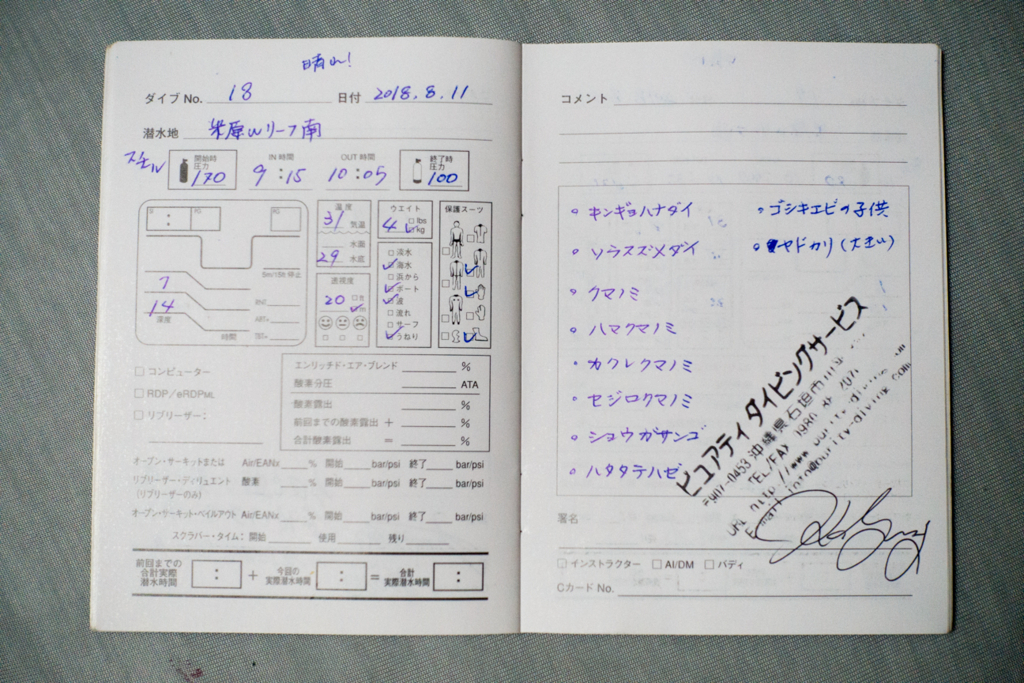 晴れ!
ダイブ No. 18 日付 2018.8.11
潜水地 米原Wリーフ南
スチール 開始時圧力 170 IN 時間 9:15 OUT 時間 10:05 終了時圧力 100
温度 31 気温
水面
29 水底
ウエイト 4 lbs kg
保護スーツ
淡水
海水
浜から
ボート
波
流れ
サーフ
うねり
透視度 20 m
5m/15ft 停止
7
14
深度
時間
コンピューター
RDP/eRDPML
リブリーザー:
エンリッチド・エア・ブレンド %
酸素分圧 ATA
酸素露出 %
前回までの酸素露出 + %
合計酸素露出 = %
オープン・サーキットまたは Air/EANx % 開始 bar/psi 終了 bar/psi
リブリーザー・ディリュエント 酸素 % 開始 bar/psi 終了 bar/psi
(リブリーザーのみ)
オープン・サーキット・ベイルアウト Air/EANx % 開始 bar/psi 終了 bar/psi
スクラバー・タイム: 開始 使用 残り
前回までの合計実際潜水時間 : + 今回の実際潜水時間 : = 合計実際潜水時間 :
コメント
・キンギョハナダイ
・ソラスズメダイ
・クマノミ
・ハマクマノミ
・カクレクマノミ
・セジロクマノミ
・ショウガサンゴ
・ハタタテハゼ
・ゴシキエビの子供
・ヤドカリ(大きい)
ピュアティダイビングサービス
〒907-0453 沖縄県石垣市
TEL/FAX
署名
インストラクター AI/DM バディ
Cカード No.